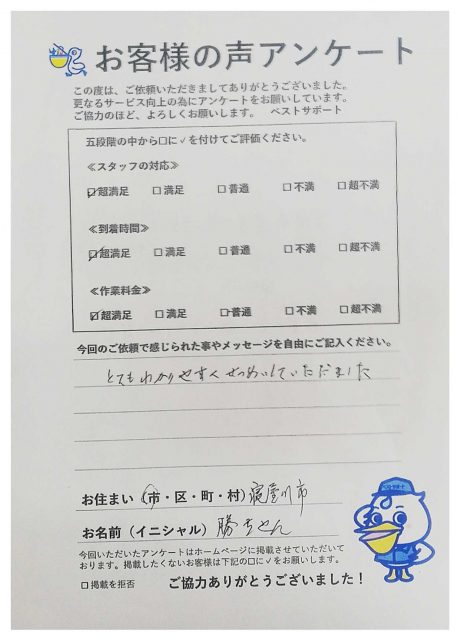 お客様の声アンケート
この度は、ご依頼いただきましてありがとうございました。
更なるサービス向上の為にアンケートをお願いしています。
ご協力のほど、よろしくお願いします。 ベストサポート
五段階の中から□に✓を付けてご評価ください。
≪スタッフの対応≫
☑超満足 □満足 □普通 □不満 □超不満
≪到着時間≫
☑超満足 □満足 □普通 □不満 □超不満
≪作業料金≫
☑超満足 □満足 □普通 □不満 □超不満
今回のご依頼で感じられた事やメッセージを自由にご記入ください。
とてもわかりやすくせつめいしていただきました
お住まい（市・区・町・村）寝屋川市
お名前（イニシャル）勝
今回いただいたアンケートはホームページに掲載させていただいて
おります。掲載したくないお客様は下記の□に✓をお願いします。
□掲載を拒否 ご協力ありがとうございました！